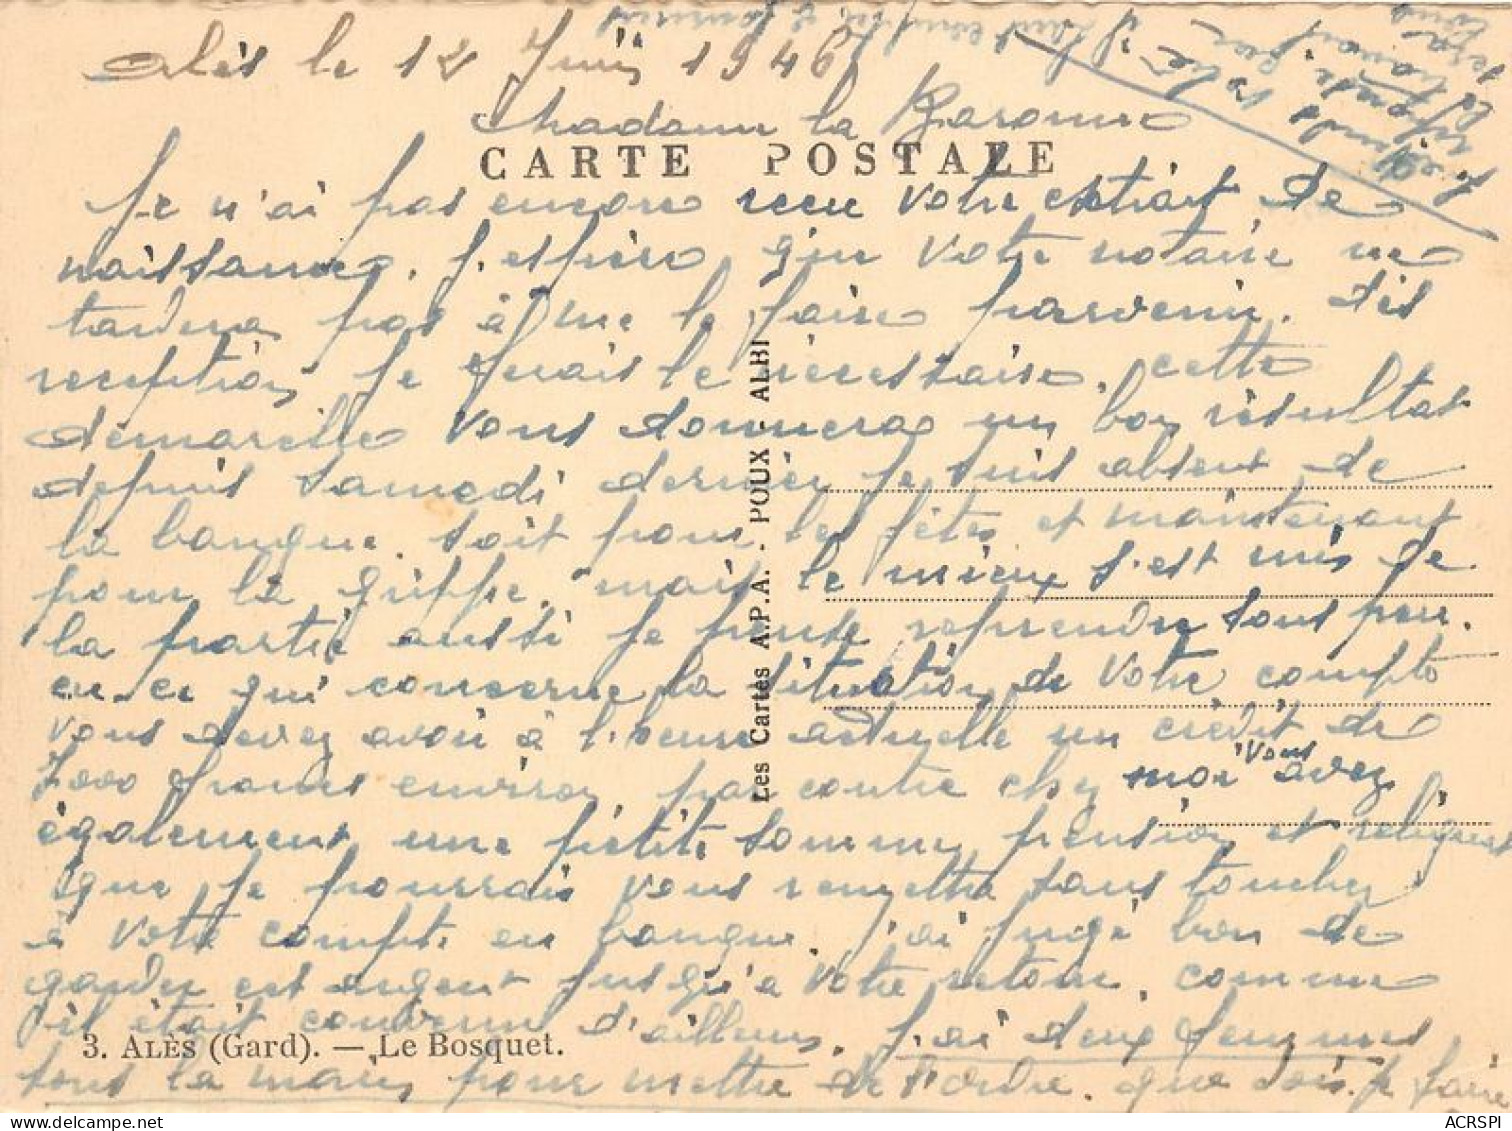 Alès le 12 Juin 1946
Madame la Baronne
CARTE POSTALE
Je n'ai pas encore recu votre extrait de
naissance. J'espère que votre notaire ne
tardera pas à me le faire parvenir. Dès
reception je ferais le nécessaire. cette
démarche vous donnera un bon résultat
depuis samedi dernier je suis absent de
la banque. soit pour les fêtes et maintenant
pour la grippe. mais le mieux s'est mis de
la partie aussi je pense reprendre sous peu.
en ce qui concerne la situation de votre compte
vous devez avoir à l'heure actuelle un crédit de
7000 francs environ, par contre chez moi vous avez
également une petite somme, pension et reliquat
que je pourrais vous remettre sans toucher
à votre compte en banque. J'ai jugé bon de
garder cet argent jusqu'à votre retour, comme
il était convenu d'ailleurs. J'ai deux femmes
sous la main pour mettre de l'ordre. que dois je faire
3. ALÈS (Gard). — Le Bosquet.
Les Cartes A.P.A. - POUX - ALBI